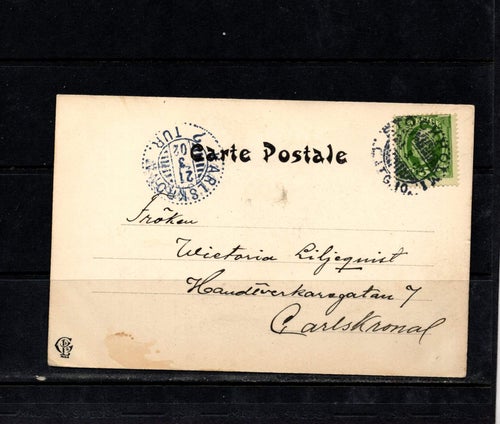 Carte Postale
CARLSKRONA
21 3 02
2 TUR.
Fröken
Wictoria Liljeqvist
Handtverkaregatan 7
Carlskrona